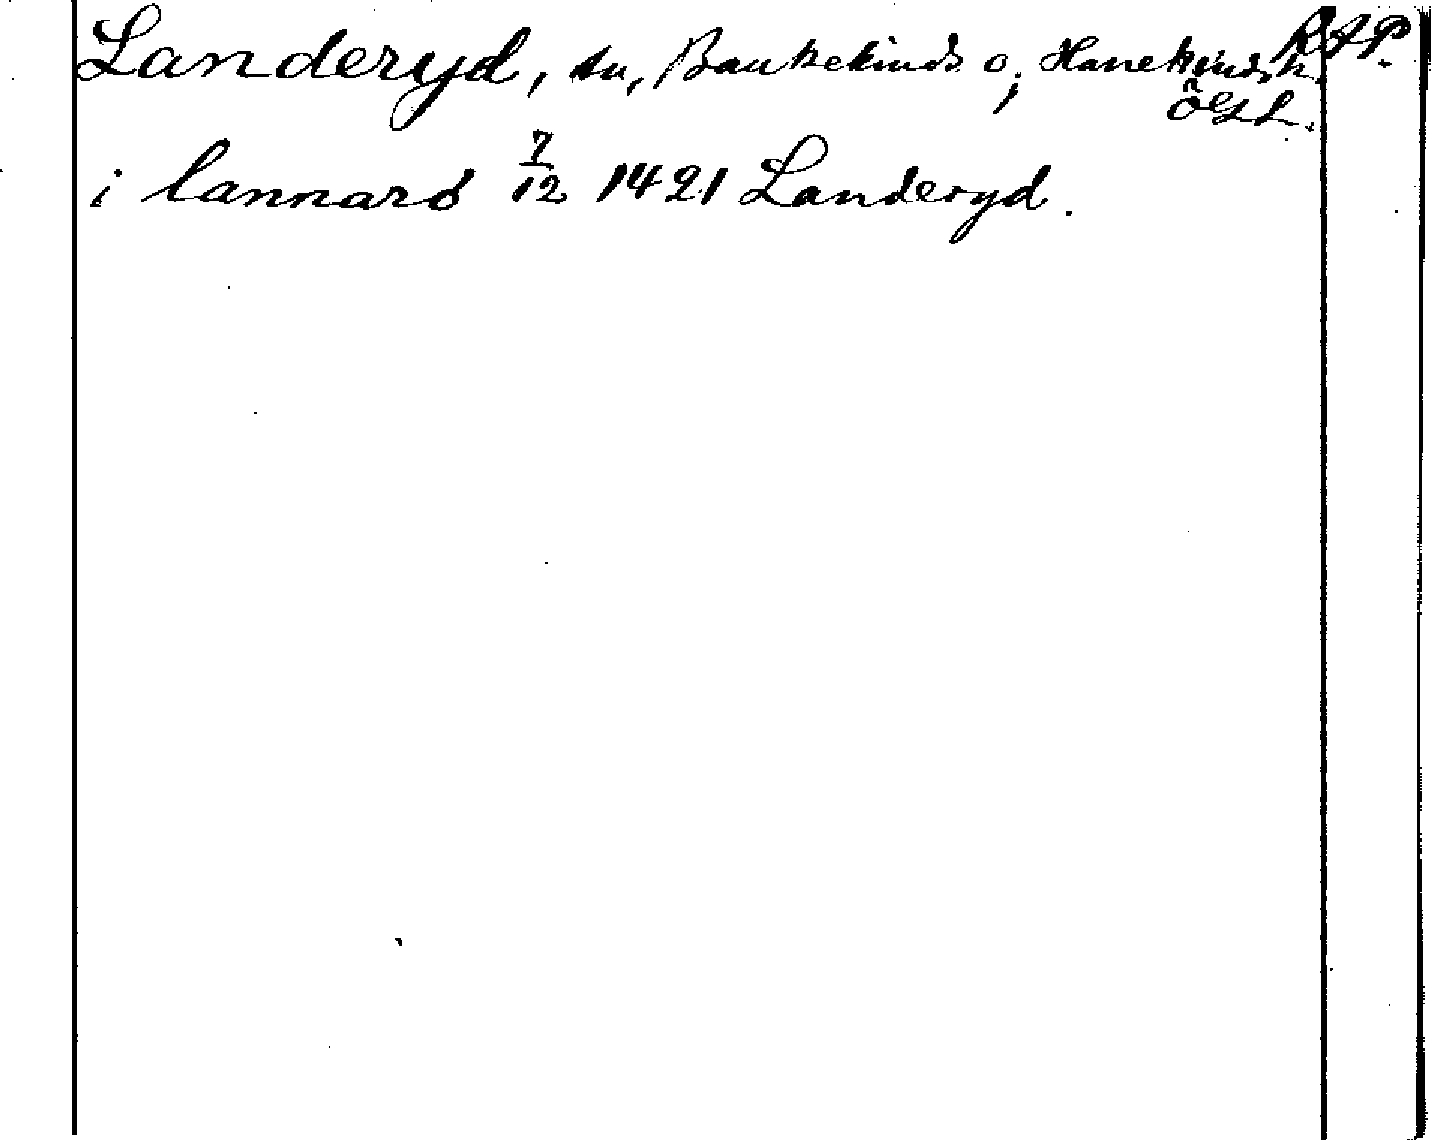 Landeryd, sn, Bankekinds o, Hanekinds h. RAP.
ÖGL.
i lannarö 7/12 1421 Landeryd.